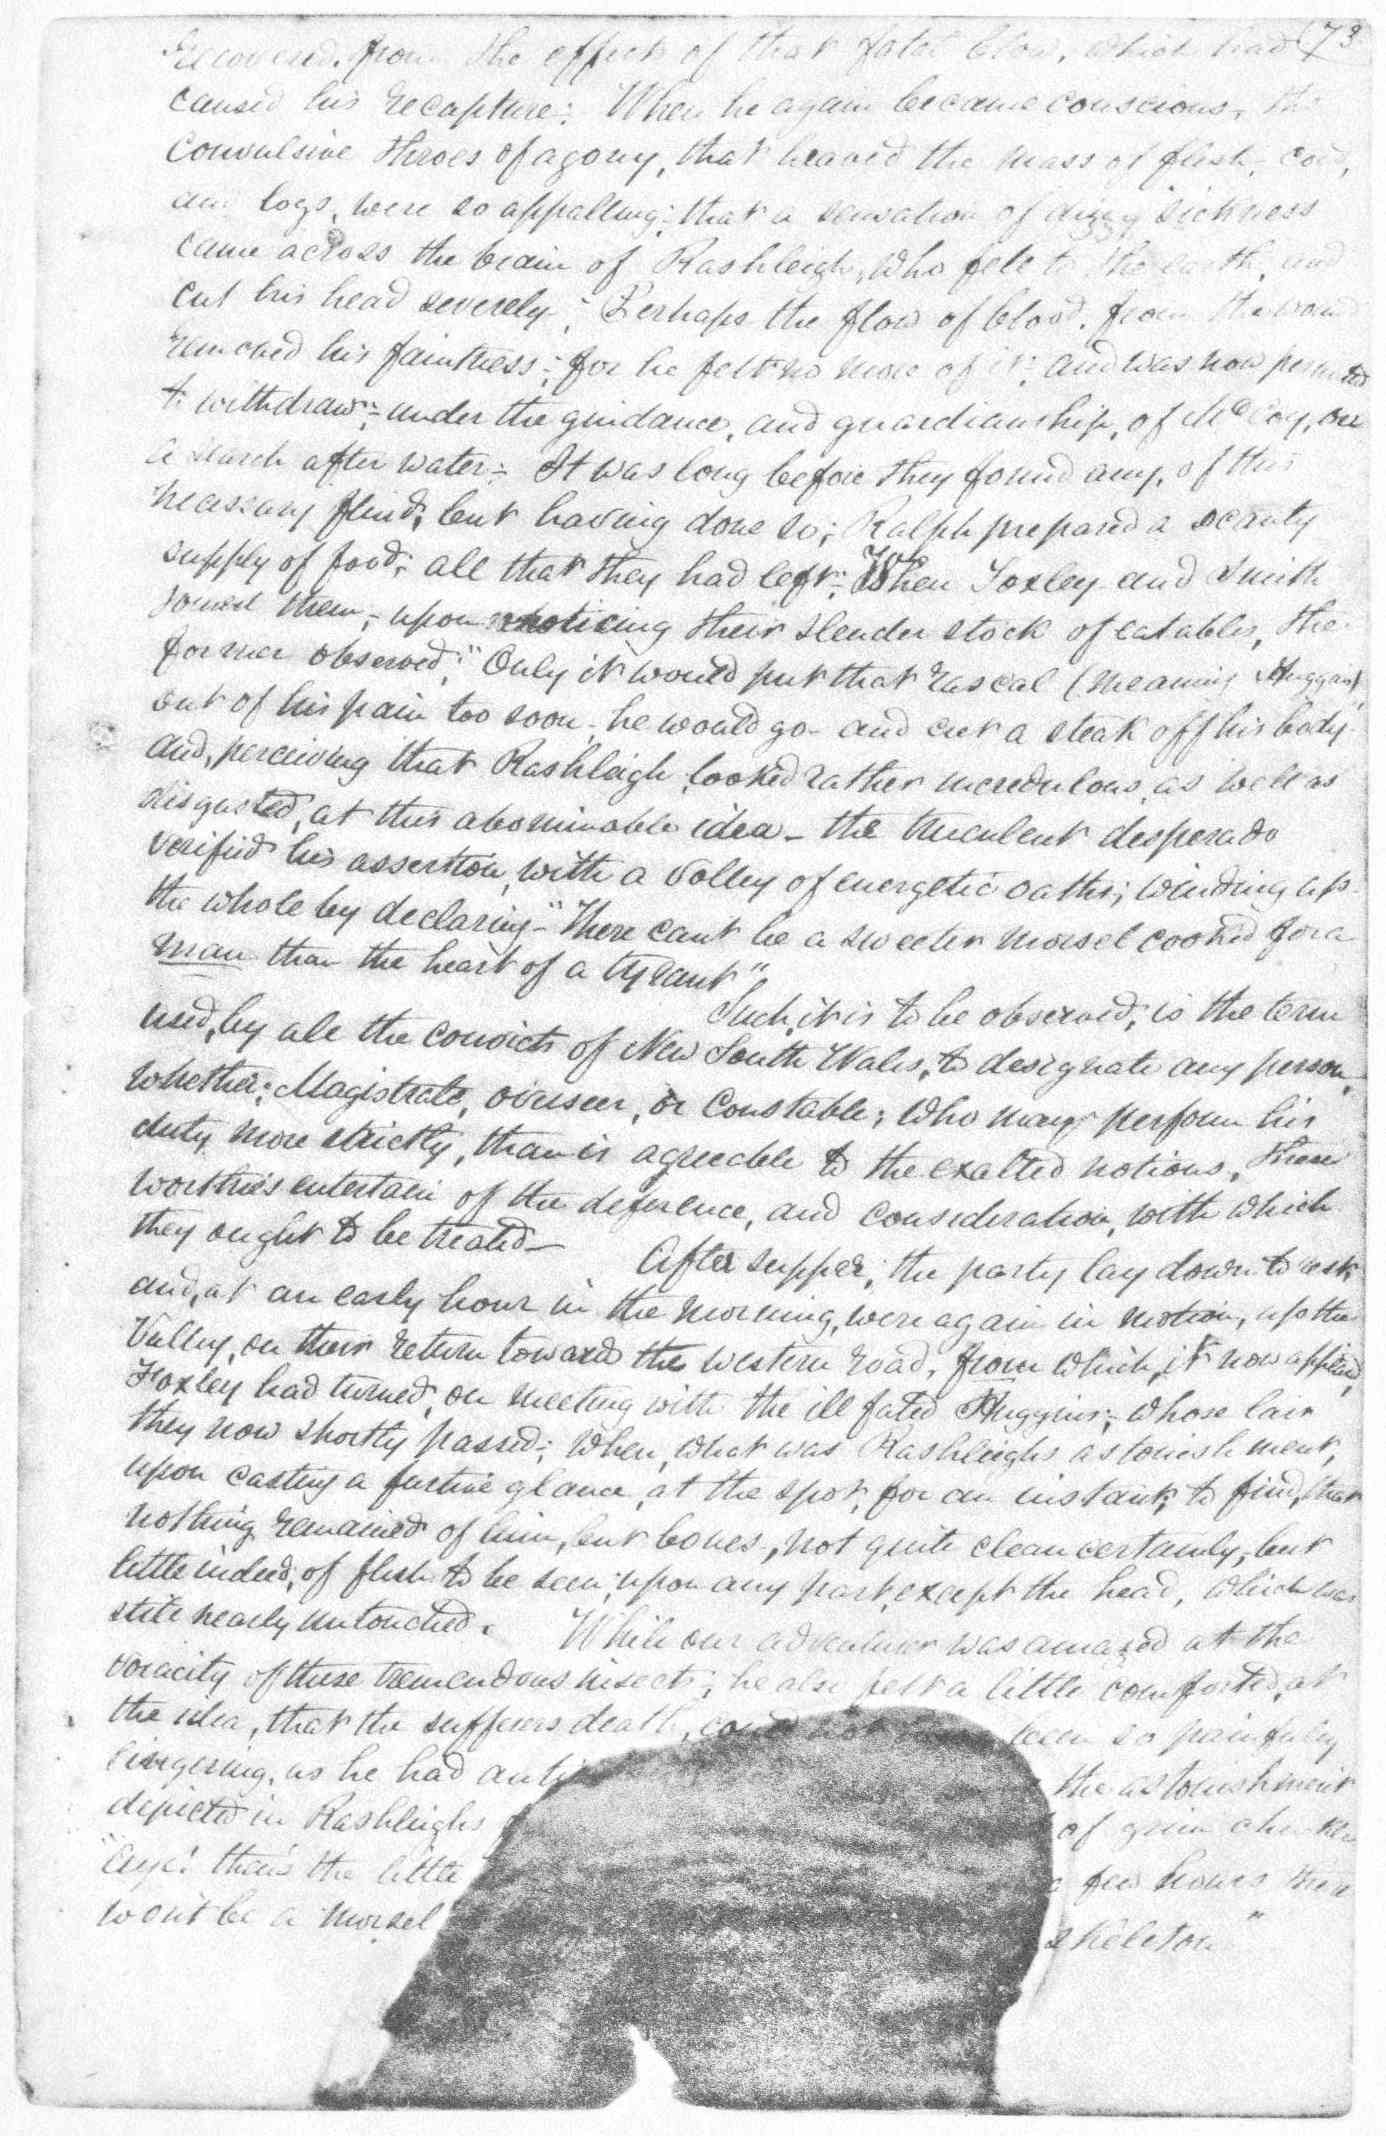 73
recovered. from the effects of that fatal blow, which had
caused his recapture: When he again became conscious, the
convulsive throes of agony, that heaved the mass of flesh, cord,
and logs, were so appalling; that a sensation of dizzy sickness
came across the brain of Rashleigh, who fell to the earth, and
cut his head severely; Perhaps the flow of blood. from the wound
removed his faintness; for he felt no more of it; and was now permitted
to withdraw; under the guidance, and guardianship, of McCoy, on
a search after water; It was long before they found any, of this
necessary fluid; but having done so; Ralph prepared a scanty
supply of food; all that they had left; When Foxley and Smith
joined them; upon noticing their slender stock of eatables, the
former observed; "Only it would put that rascal (meaning Huggins)
out of his pain too soon he would go and cut a steak off his body
and, perceiving that Rashleigh looked rather incredulous, as well as
disgusted, at this abominable idea - the truculent desperado
verified his assertion, with a volley of energetic oaths; winding up
the whole by declaring - "There cant be a sweeter morsel cooked for a
man than the heart of a tyrant"
Such, it is to be observed; is the term
used, by all the convicts of New South Wales, to designate any person,
whether; Magistrate, overseer, or Constable; who may perform his
duty more strictly, than is agreeable to the exalted notions, these
worthies entertain of the deference, and consideration, with which
they ought to be treated — After supper; the party lay down to rest
and, at an early hour in the morning, were again in motion, up the
Valley, on their return toward the western road, from which, it now appeared,
Foxley had turned, on meeting with the ill fated Huggins; whose lair
they now shortly passed; When, what was Rashleighs astonishment,
upon casting a furtive glance, at the spot, for an instant; to find, that
nothing remained of him, but bones, not quite clean certainly; but
little indeed; of flesh to be seen, upon any part, except the head, which was
still nearly untouched. While our adventurer was amazed at the
voracity of these tremendous insects; he also felt a little comforted, at
the idea, that the sufferers death, could not have been so painfully
lingering, as he had anti the astonishment
depicted in Rashleighs of grim chuckle
"Aye! thats the little few hours there
wont be a morsel skeleton"